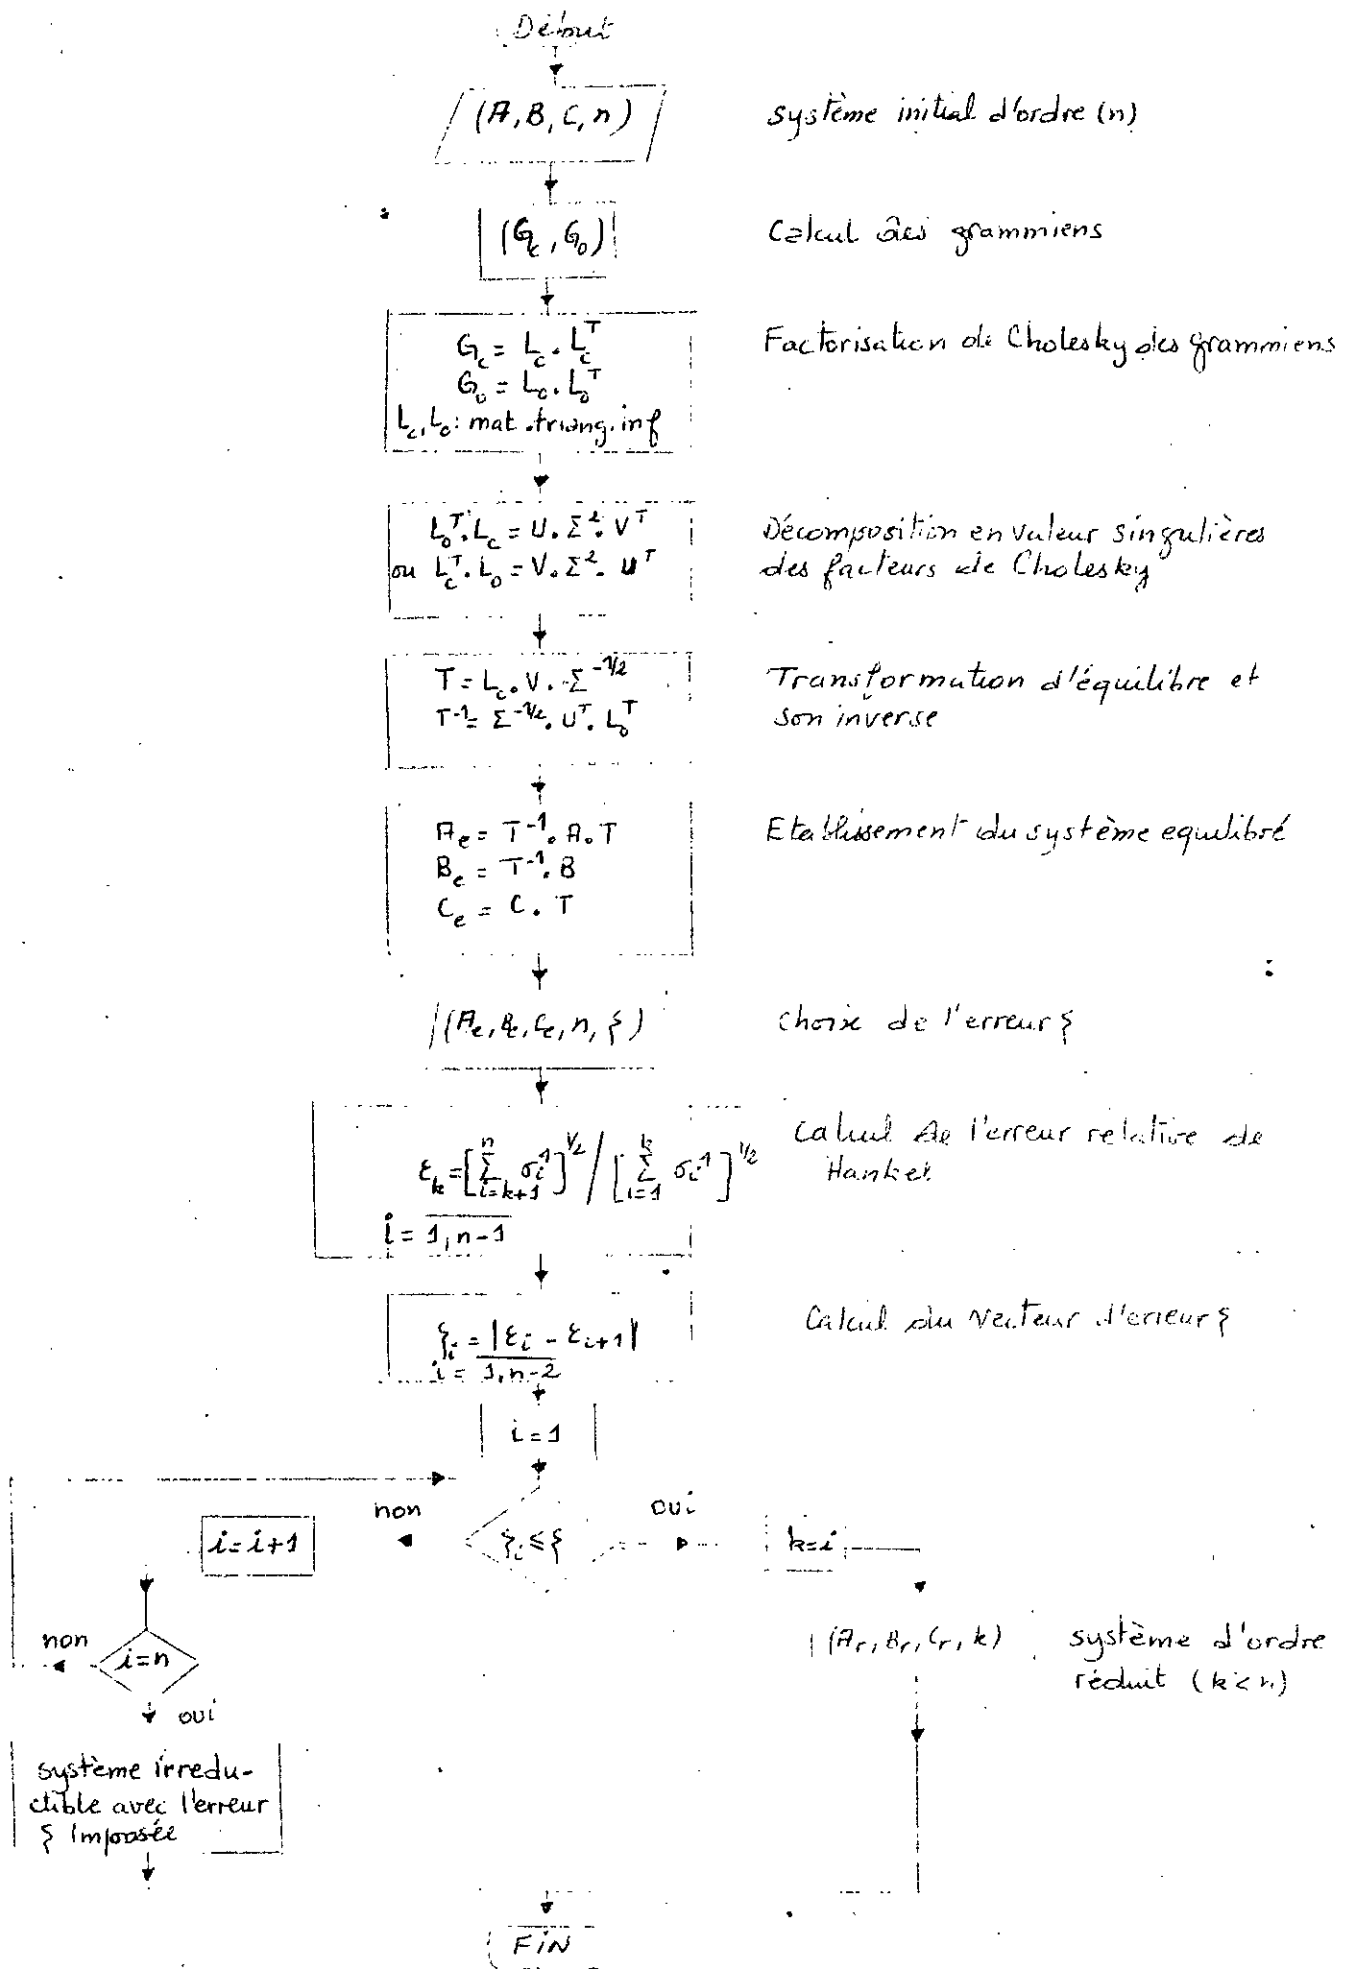 Début
(A, B, C, n)
système initial d'ordre (n)
(G_c, G_o)
Calcul des grammiens
G_c = L_c . L_c^T
G_o = L_o . L_o^T
L_c, L_o : mat. triang. inf
Factorisation de Cholesky des grammiens
L_o^T . L_c = U . Σ² . V^T
ou L_c^T . L_o = V . Σ² . U^T
Décomposition en valeur singulières
des facteurs de Cholesky
T = L_c . V . Σ^-1/2
T^-1 = Σ^-1/2 . U^T . L_o^T
Transformation d'équilibre et
son inverse
A_e = T^-1 . A . T
B_e = T^-1 . B
C_e = C . T
Etablissement du système equilibré
(A_e, B_e, C_e, n, ξ)
choix de l'erreur ξ
ε_k = [Σ_{i=k+1}^n σ_i^1]^1/2 / [Σ_{i=1}^k σ_i^1]^1/2
i = 1, n-1
Calcul de l'erreur relative de
Hankel
ξ_i = |ε_i - ε_{i+1}|
i = 1, n-2
Calcul du vecteur d'erreur ξ
i = 1
non
oui
i = i+1
ξ_i ≤ ξ
k = i
non
i = n
oui
(A_r, B_r, C_r, k)
système d'ordre
réduit (k < n)
système irredu-
ctible avec l'erreur
ξ Imposée
FIN